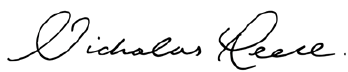 Nicholas Reese.